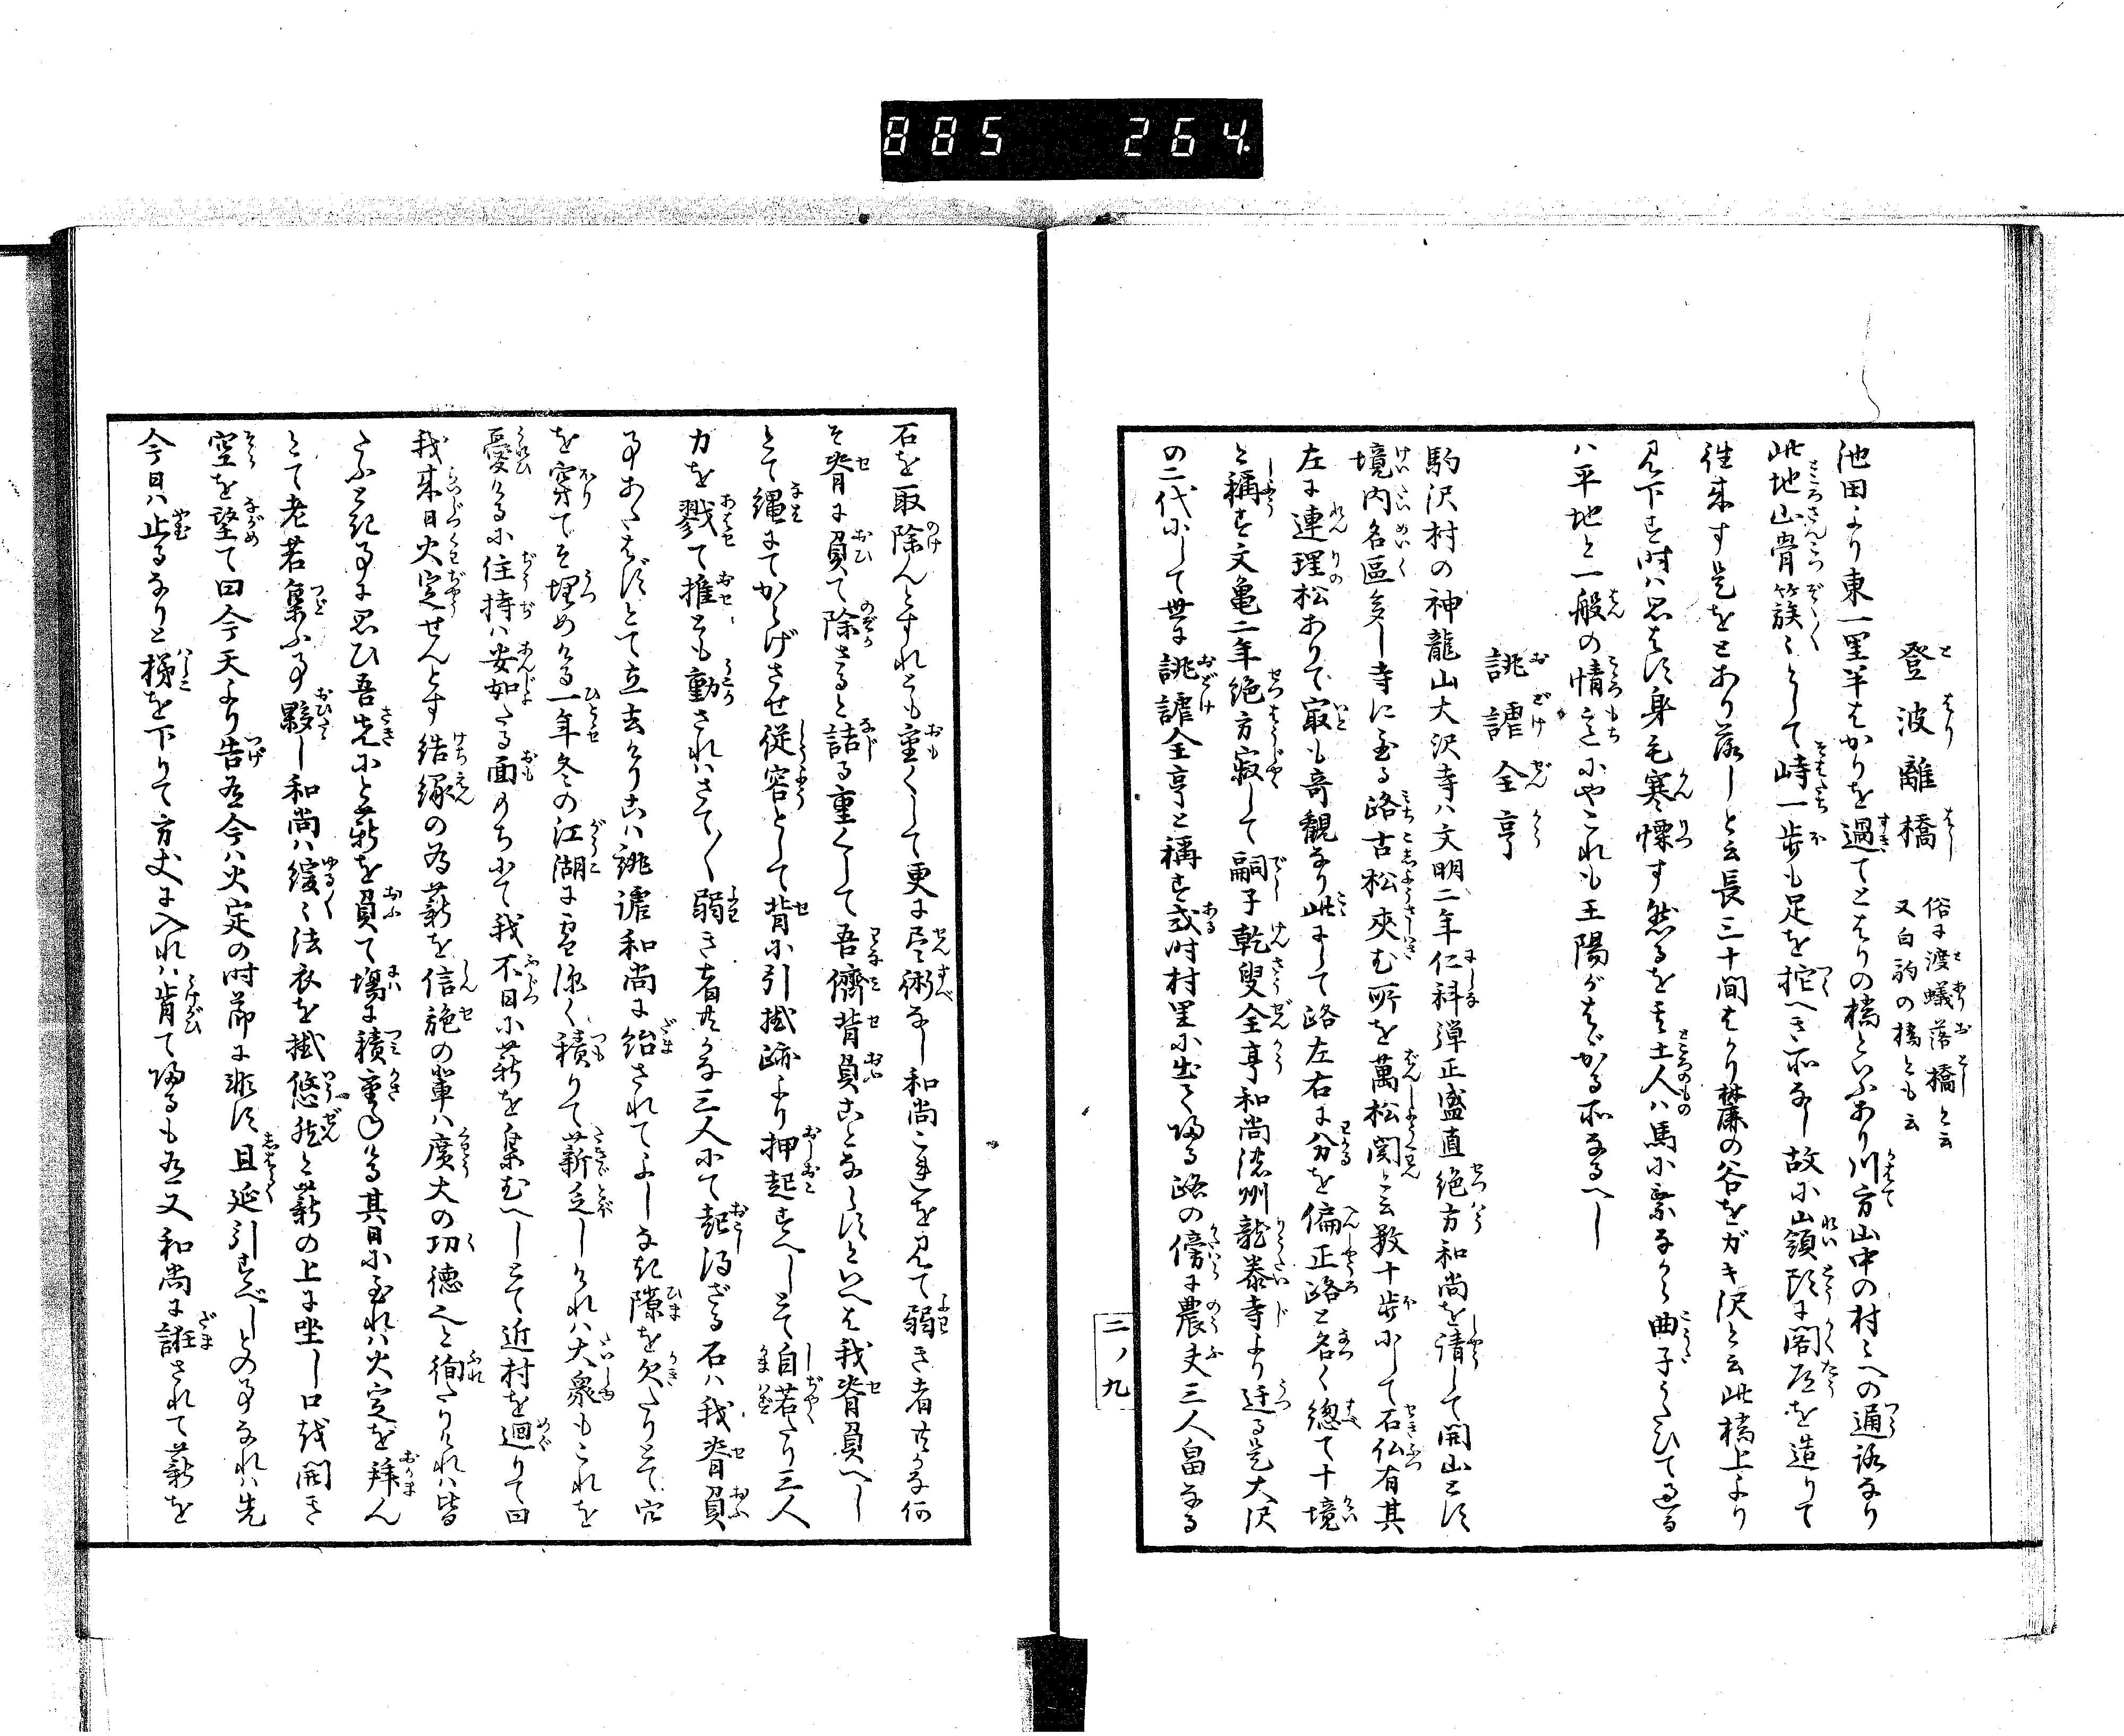 885 264.
登波離橋 俗に渡蟻落橋と云
又白駒の橋とも云
池田より東一里半はかりを過てとはりの橋といふあり川方山中の村々への通路なり
此地山骨簇々として峙一歩も足を控へき所なし故に山嶺頭に閣道を造りて
往来す是をとあり落しと云長三十間はかり の谷をガキ沢と云此橋上より
見下す時は思はす身毛寒慄す然るを土人ハ馬に乗なから曲子うたひて過る
ハ平地と一般の情意にやこれも王陽がはゞかる所なるへし
誂謔全亨
駒沢村の神龍山大沢寺ハ文明二年仁科弾正盛直絶方和尚を請して開山とす
境内名區多し寺に至る路古松夾む所を萬松関と云数十歩にして石仏有其
左に連理松ありて寂も奇観なり此にして路左右に分を偏正路と名く總て十境
と稱す文亀二年絶方寂して嗣子乾叟全亨和尚 州龍泰寺より 是大沢
の二代にして世に誂謔全亨と稱す或時村里に出て帰る路の傍に農夫三人畠なる
三ノ九
石を取除んとすれとも重くして更に術なし和尚これを見て弱き者共かな何
そ脊に負て除さると詰る重くして吾儕背負ことならすといへは我脊負へし
とて縄にてからげさせ従容として背に引掛跡より押起すへしとて自若たり三人
力を戮て推とも動されハさて／＼弱き者共かな三人にて起得ざる石ハ我脊負
事あたはずとて立去けりこハ誂謔和尚に紿されてよしなき隙を欠たりとて穴
を穿てそ埋めける一年冬の江湖に雪深く積りて薪乏しけれハ大衆もこれを
憂けるに住持ハ安如たる面もちにて我不日に薪を集むへしとて近村を廻りて曰
我来日火定せんとす結縁の為薪を信施の輩ハ廣大の功徳と徇たりけれハ皆
たふとき事に思ひ吾先にと薪を負て場に積重ぬる其日に至れハ火定を拝ん
とて老若集ふ事夥し和尚ハ緩々法衣を掛悠然と薪の上に坐し口を開き
空を望て曰今天より告有今ハ火定の時節に非す且延引すべしとの事なれハ先
今日ハ止るなりと梯を下りて方丈に入れハ肯て帰るも有又和尚に誑されて薪を